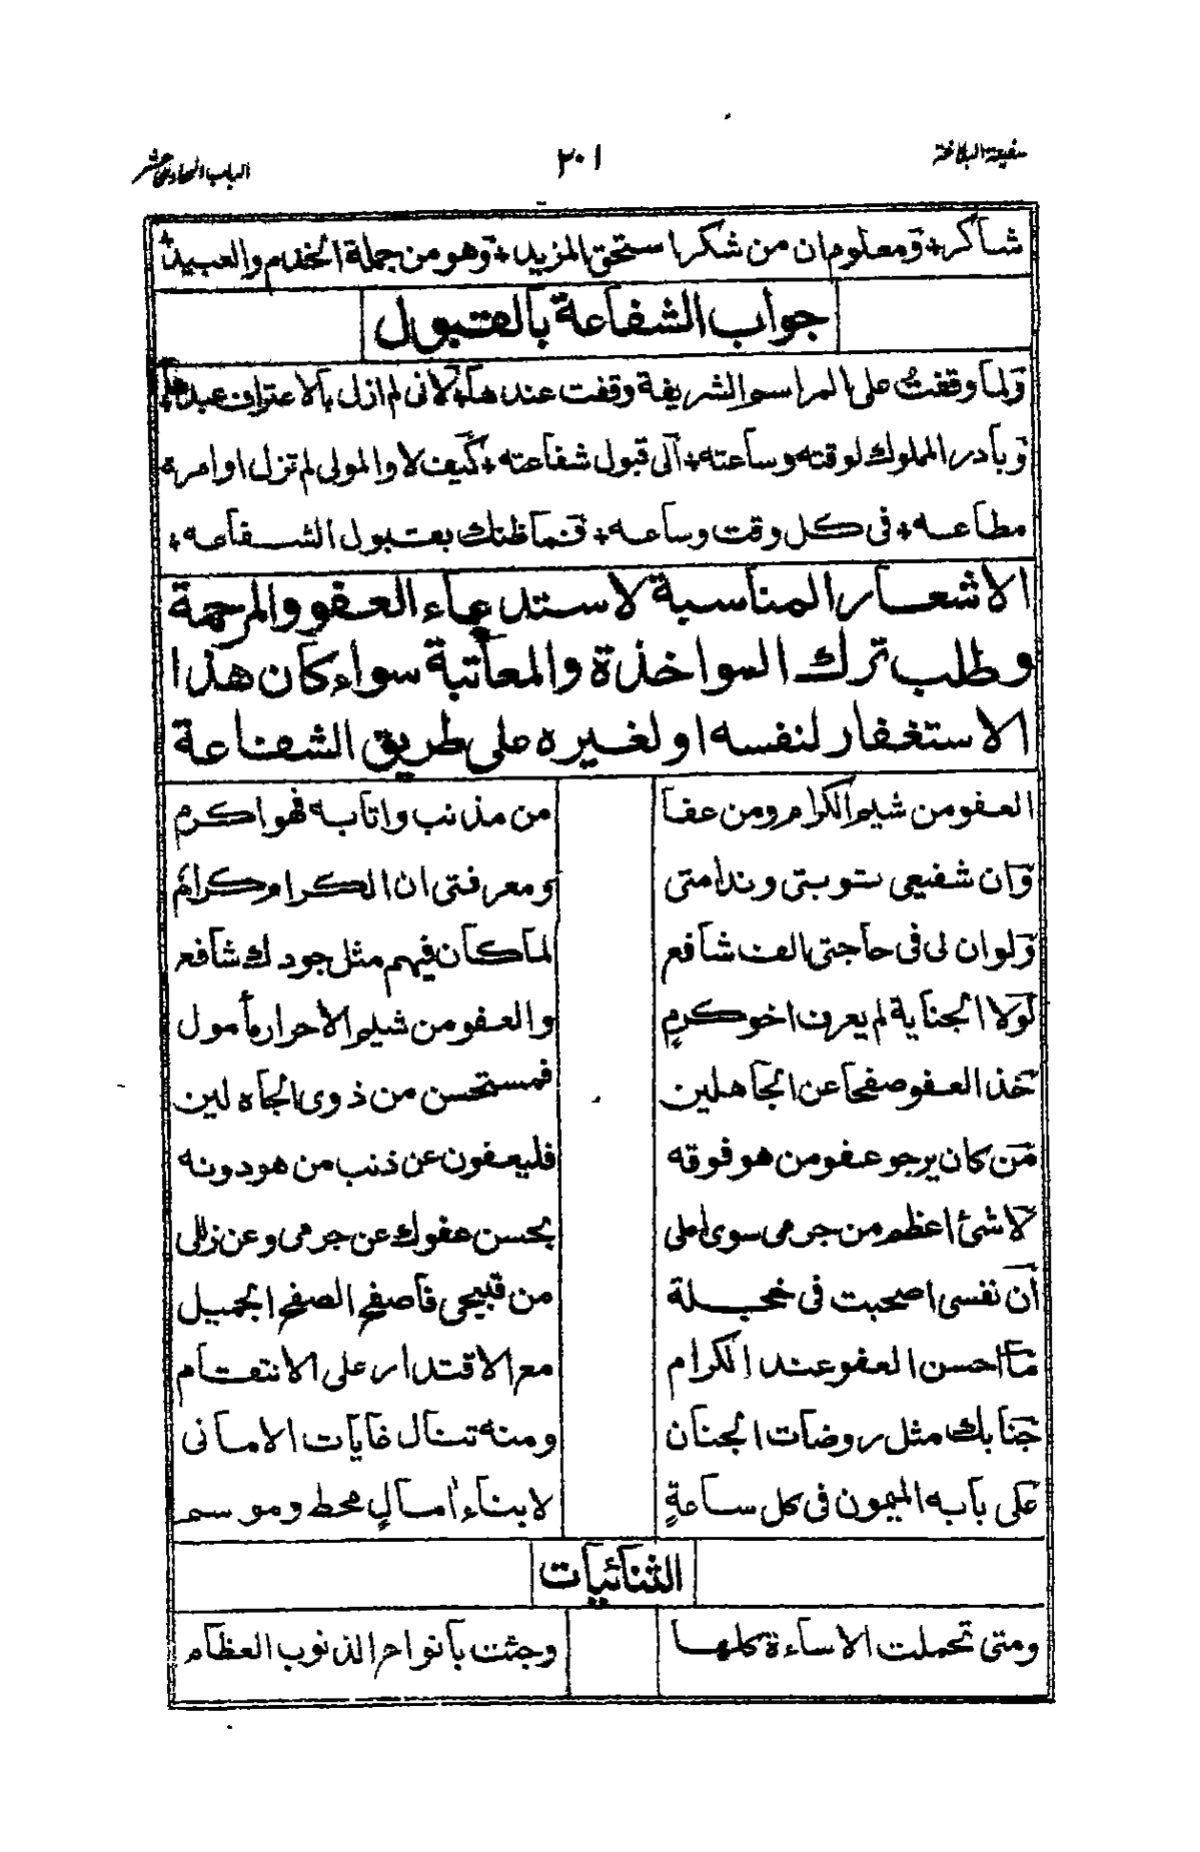 سفينة البلاغة ٢٠١ الباب الحادي عشر
شاكر + ومعلوم ان من شكر استحق المزيد + وهو من جملة الخدم والعبيد +
جواب الشفاعة بالقبول
ولما وقفت على المراسم الشريفة وقفت عندها + لانى لم ازل بالاعتراف عبدها +
وبادر المملوك لوقته وساعته + الى قبول شفاعته + كيف لا والمولى لم تزل اوامره
مطاعه + فى كل وقت وساعه + فما ظنك بقبول الشفاعه +
الاشعار المناسبة لاستدعاء العفو والمرحمة
وطلب ترك المواخذة والمعاتبة سواء كان هذا
الاستغفار لنفسه او لغيره على طريق الشفاعة
العفو من شيم الكرام ومن عفا من مذنب واتابه فهو اكرم
وان شفيعى توبتى وندامتى ومعرفتى ان الكرام كرام
ولو ان لى فى حاجتى الف شافع لما كان فيهم مثل جودك شافع
لولا الجناية لم يعرف اخو كرم والعفو من شيم الاحرار مأمول
خذ العفو صفحا عن الجاهلين فمستحسن من ذوى الجاه لين
من كان يرجو عفو من هو فوقه فليعفون عن ذنب من هو دونه
لا شئ اعظم من جرمى سوى املى بحسن عفوك عن جرمى وعن زللى
ان نفسى اصحبت فى خجلة من قبيحى فاصفح الصفح الجميل
ما احسن العفو عند الكرام مع الاقتدار على الانتقام
جنابك مثل روضات الجنان ومنه تنال غايات الامانى
على بابه الميمون فى كل ساعة لابناء امال محط وموسم
الثنائيات
ومتى تحملت الاساءة كلها وجئت بانواع الذنوب العظام